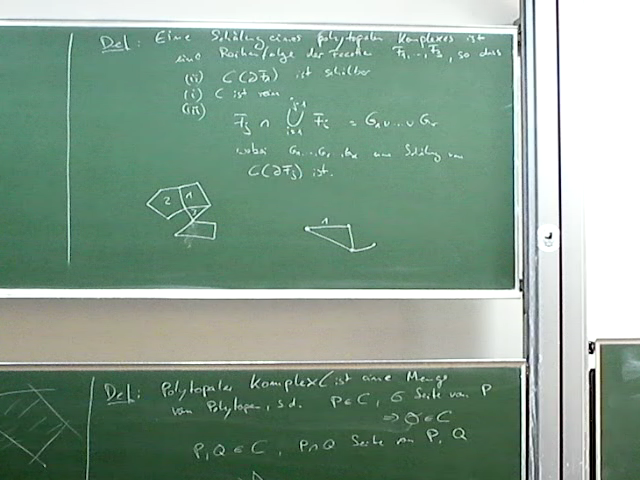 Def: Eine Schälung eines polytopalen Komplexes ist
eine Reihenfolge der Facetten F1,...,Fs, so dass
(ii) C(∂F1) ist schälbar
(i) C ist rein
(iii)
Fj ∩ ⋃ Fi = G1 ∪ ... ∪ Gr
j-1
i=1
wobei G1...Gr
C(∂Fj) ist.
2 1
3
1
Def: Polytopaler Komplex C ist eine Menge
von Polytopen, s.d. P∈C, G Seite von P
⇒ G ∈ C
P, Q ∈ C, P∩Q Seite von P, Q